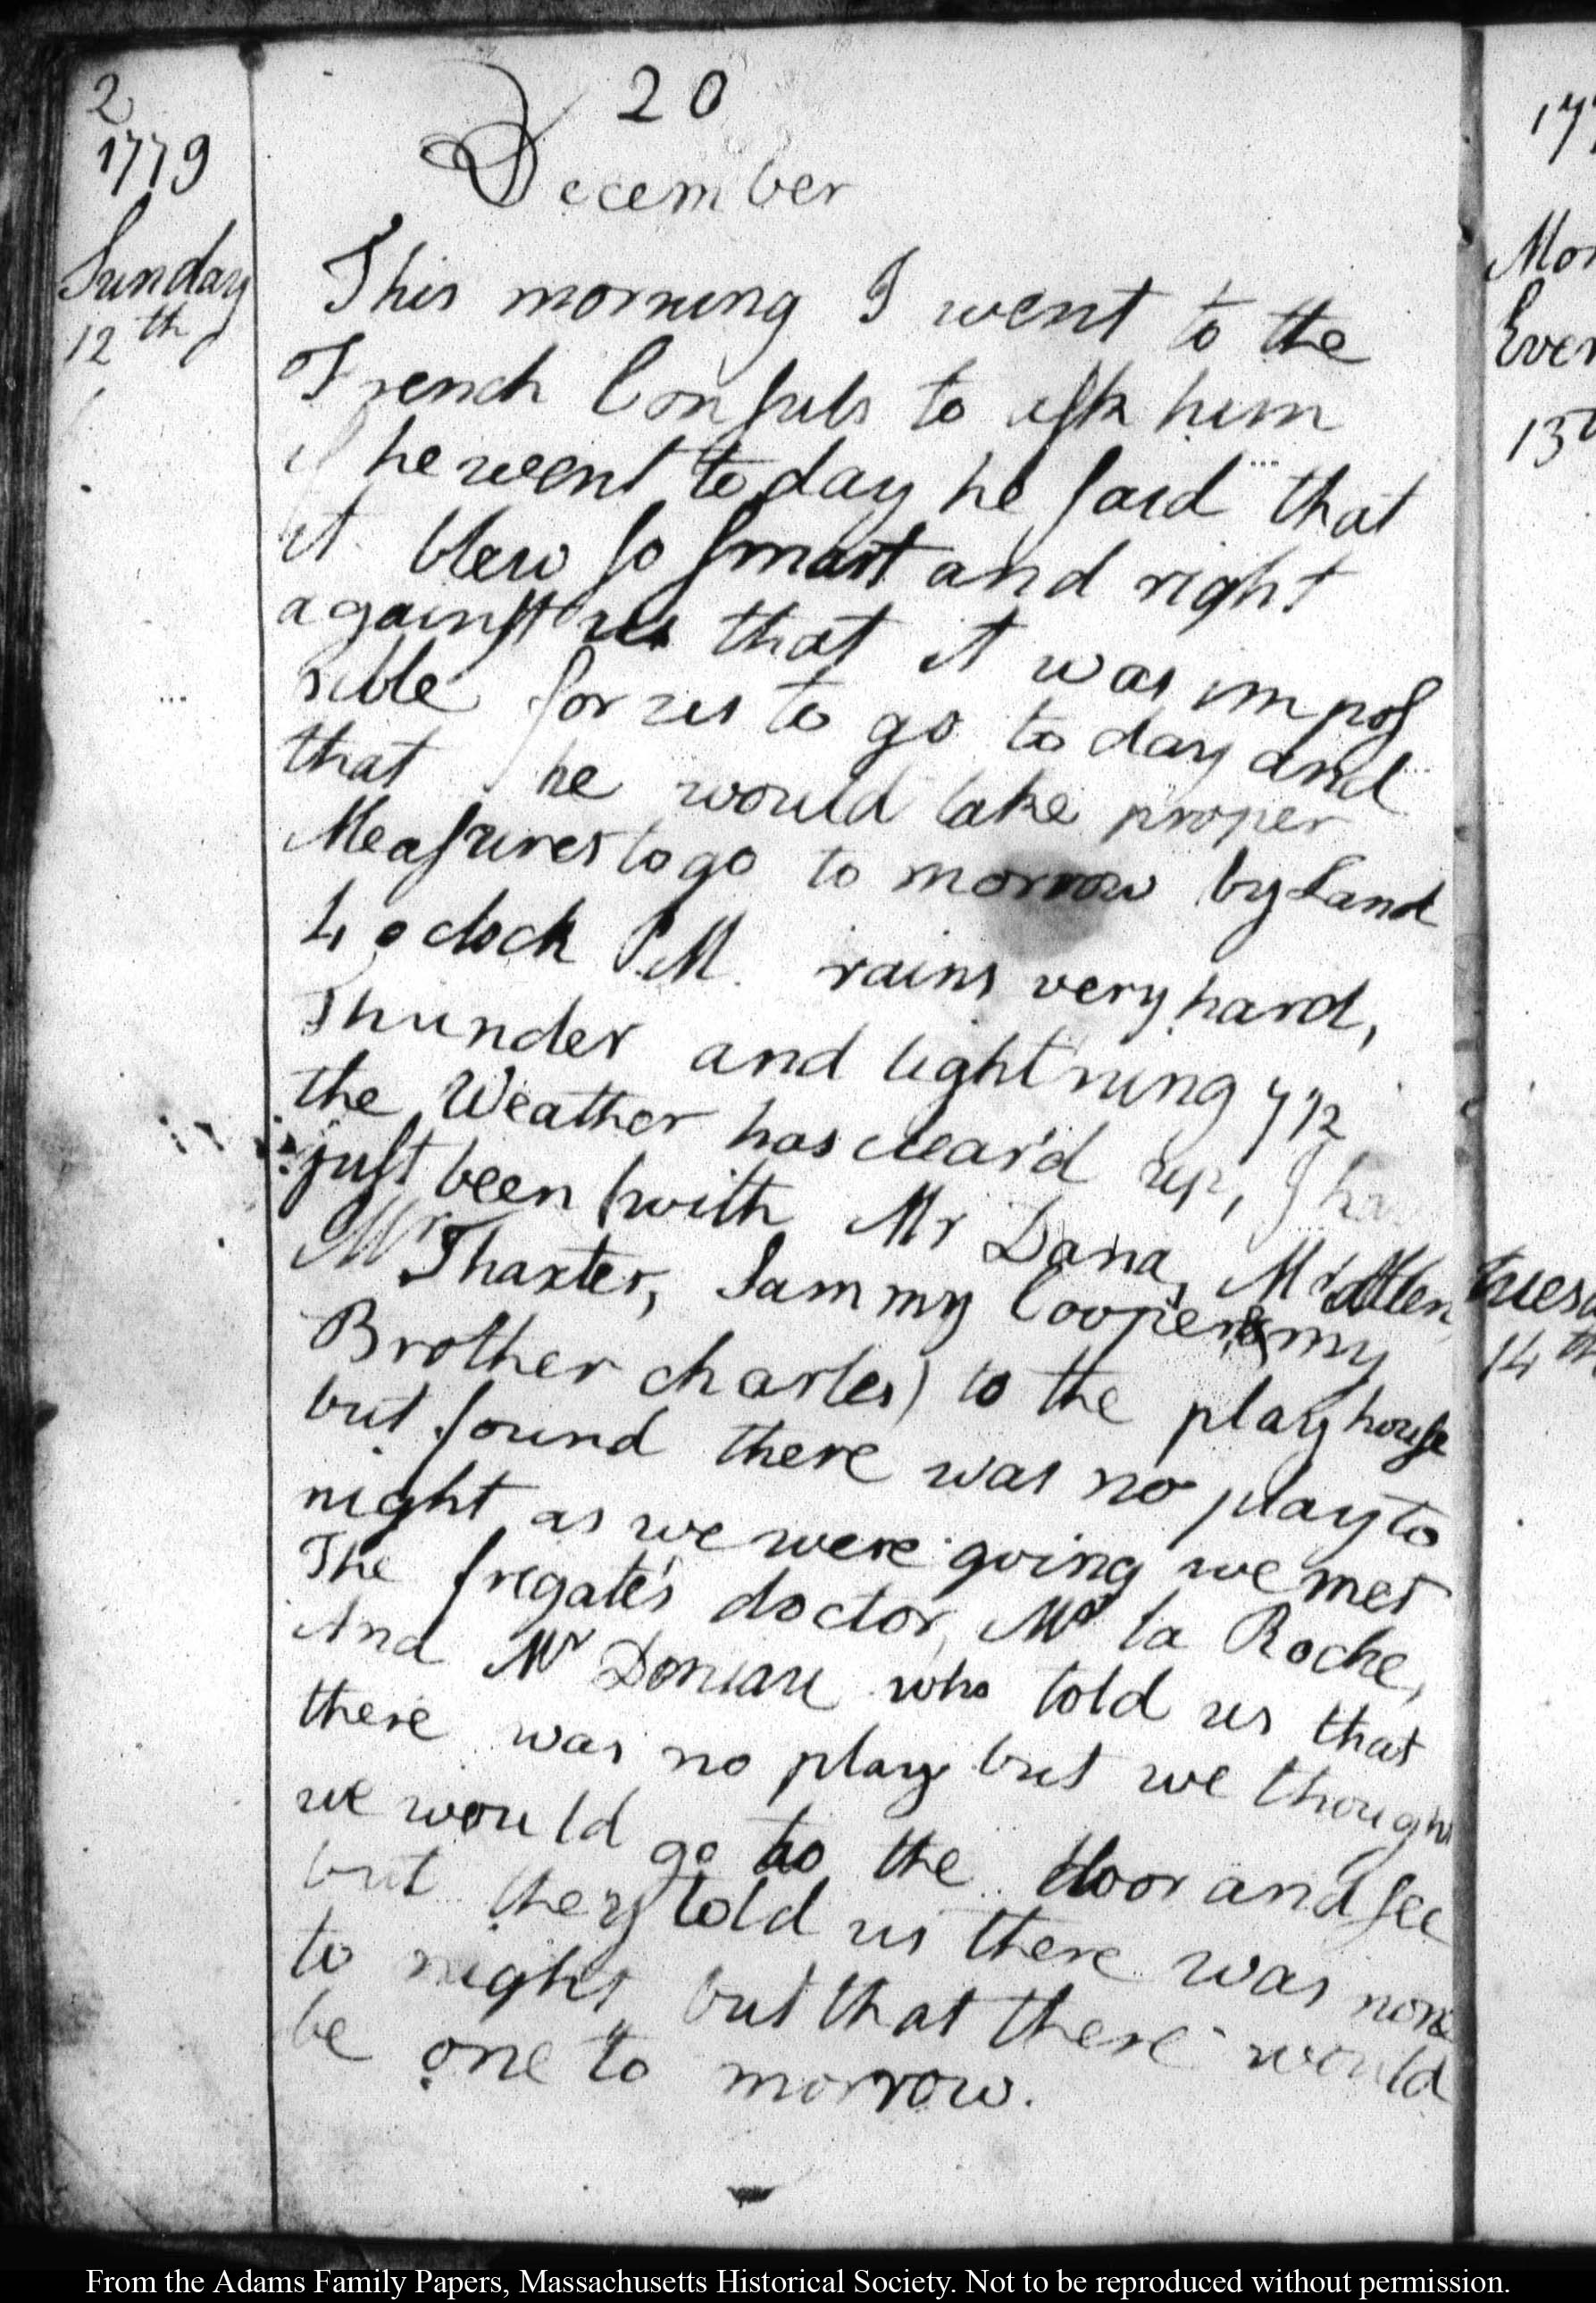 2
20
1779
December
Sunday
12th
This morning I went to the
French Consuls to ask him
if he went to day he said that
it blew so smart and right
against us that it was impos
sible for us to go to day and
that he would take proper
Measures to go to morrow by Land
4 o clock P.M. rains very hard,
Thunder and lightning 7 1/2
the Weather has clear'd up, I ha
just been (with Mr Dana, Mr Allen,
Mr Thaxter, Sammy Cooper & my
Brother charles) to the play house
but found there was no play to
night as we were going we met
The frigate's doctor, Mr la Roche,
And Mr Doniau who told us that
there was no play but we though
we would go to the door and see
but they told us there was none
to night but that there would
be one to morrow.
17
Mon
Even
13
tuesd
14 th
From the Adams Family Papers, Massachusetts Historical Society. Not to be reproduced without permission.